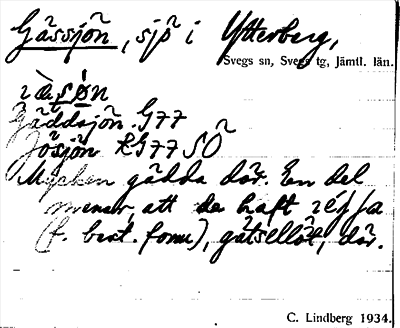 Gässjön, sjö i Ytterberg,
Svegs sn, Svegs tg, Jämtl. län.
Gäddsjön G77
Jösjön RG77 SÖ
Mycken gädda där. En del
menar, att de haft
(f. best. form), gätsellöt, där.
C. Lindberg 1934.